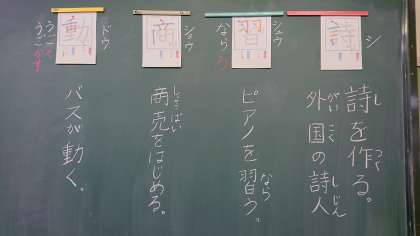 シ
詩
詩を作る。
し つく
外国の詩人
がいこく しじん
シュウ
習
なら
ピアノを習う。
なら
ショウ
商
商売をはじめる。
しょうばい
ドウ
動
うご
バスが動く。